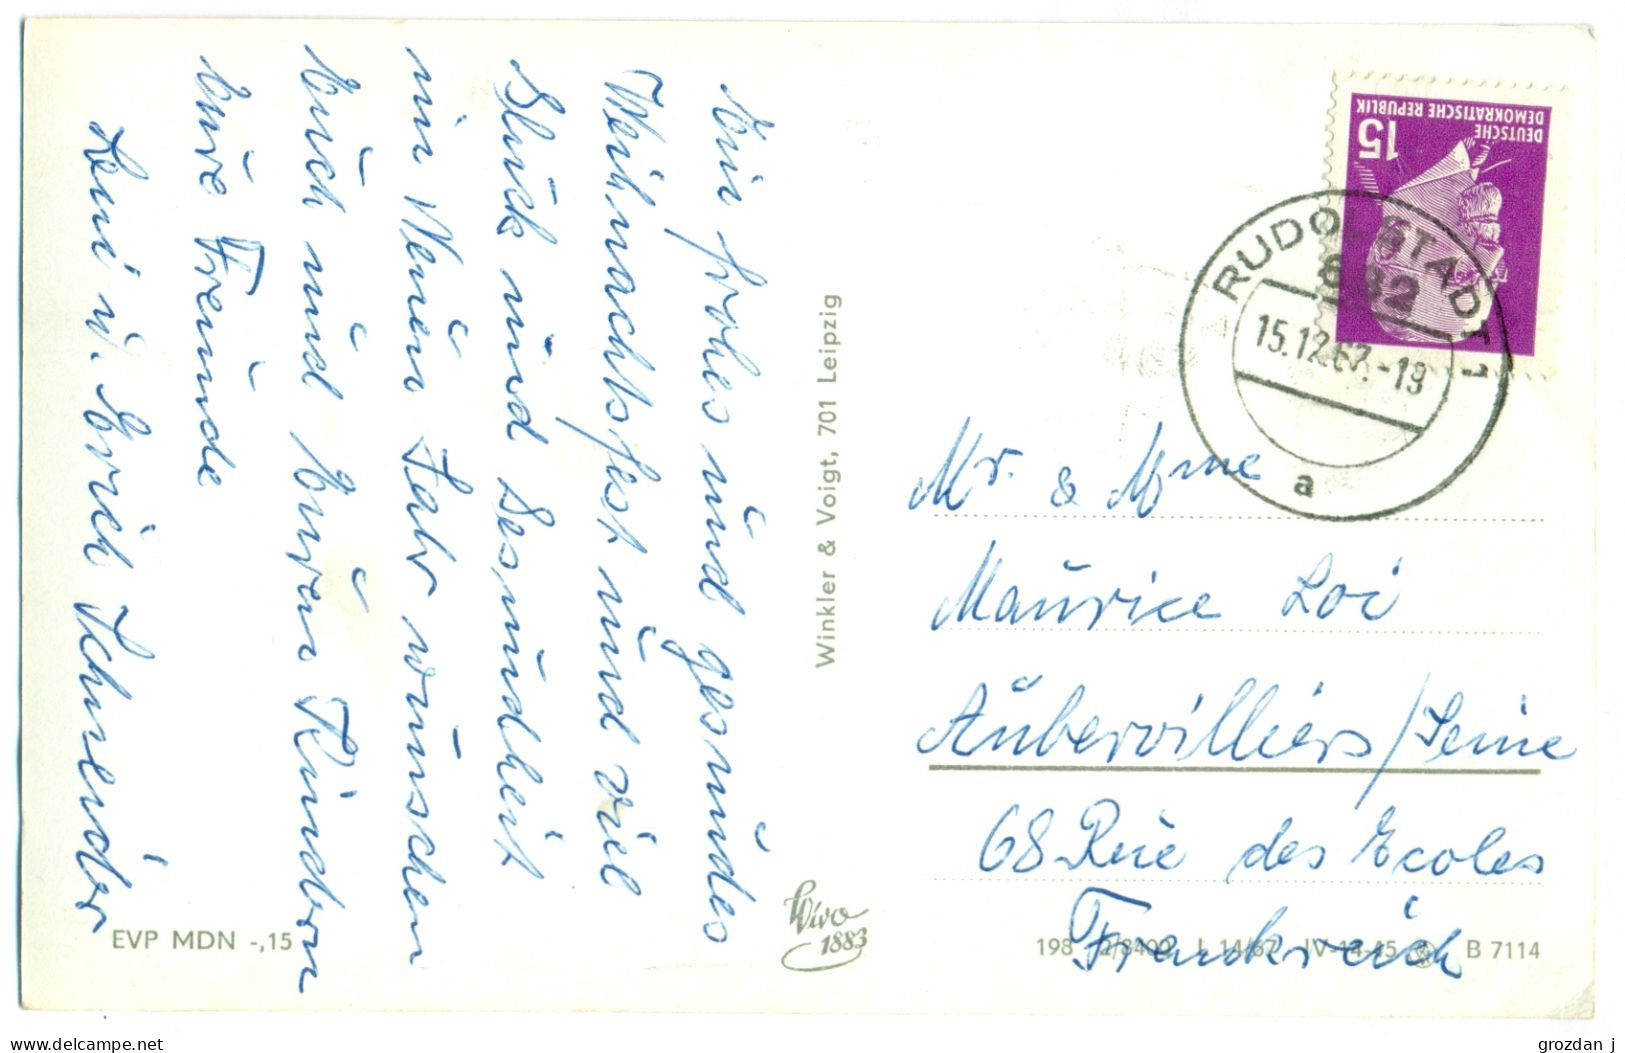 Ein frohes und gesundes
Weihnachtsfest und viel
Glück und Gesundheit
im Neuen Jahr wünschen
Euch und Euren Kindern
Eure Freunde
Leni u. Erich Schneider
EVP MDN -,15
Winkler & Voigt, 701 Leipzig
Wivo
1883
DEUTSCHE
DEMOKRATISCHE REPUBLIK
15
RUDOLSTADT 1
682
15.12.67.-19
a
Mr. & Mme
Maurice Loi
Aubervilliers/Seine
68 Rue des Ecoles
Frankreich
198 2/8400 L 14/67 IV-14-45 B 7114
grozdan j
www.delcampe.net